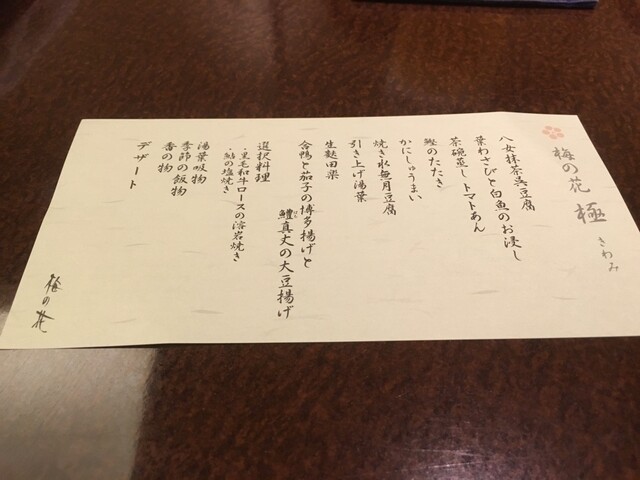 梅の花 極
きわみ
八女抹茶呉豆腐
葉わさびと白魚のお浸し
茶碗蒸し トマトあん
鰹のたたき
かにしゅうまい
焼き水無月豆腐
引き上げ湯葉
生麩田楽
合鴨と茄子の博多揚げと
鱧真丈の大豆揚げ
はも
選択料理
・黒毛和牛ロースの溶岩焼き
・鮎の塩焼き
湯葉吸物
季節の飯物
香の物
デザート
梅の花